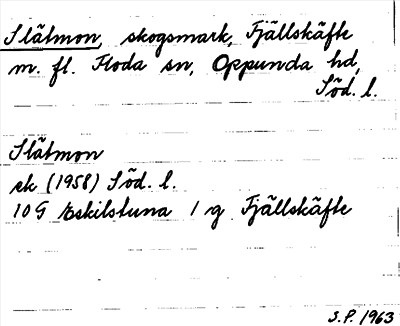 Slätmon, skogsmark, Fjällskäfte
m. fl. Floda sn, Oppunda hd,
Söd. l.
Slätmon
ek (1958) Söd. l.
10 G Eskilstuna 1 g Fjällskäfte
S.P. 1963